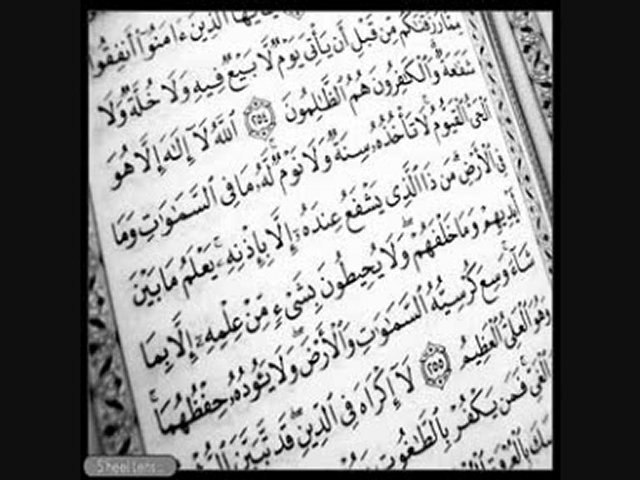 يَٰٓأَيُّهَا ٱلَّذِينَ ءَامَنُوٓا۟ أَنفِقُوا۟
مِمَّا رَزَقْنَٰكُم مِّن قَبْلِ أَن يَأْتِىَ يَوْمٌ لَّا بَيْعٌ فِيهِ وَلَا خُلَّةٌ وَلَا
شَفَٰعَةٌ وَٱلْكَٰفِرُونَ هُمُ ٱلظَّٰلِمُونَ ٢٥٤ ٱللَّهُ لَآ إِلَٰهَ إِلَّا هُوَ
ٱلْحَىُّ ٱلْقَيُّومُ لَا تَأْخُذُهُۥ سِنَةٌ وَلَا نَوْمٌ لَّهُۥ مَا فِى ٱلسَّمَٰوَٰتِ وَمَا
فِى ٱلْأَرْضِ مَن ذَا ٱلَّذِى يَشْفَعُ عِندَهُۥٓ إِلَّا بِإِذْنِهِۦ يَعْلَمُ مَا بَيْنَ
أَيْدِيهِمْ وَمَا خَلْفَهُمْ وَلَا يُحِيطُونَ بِشَىْءٍ مِّنْ عِلْمِهِۦٓ إِلَّا بِمَا
شَآءَ وَسِعَ كُرْسِيُّهُ ٱلسَّمَٰوَٰتِ وَٱلْأَرْضَ وَلَا يَـُٔودُهُۥ حِفْظُهُمَا
وَهُوَ ٱلْعَلِىُّ ٱلْعَظِيمُ ٢٥٥ لَآ إِكْرَاهَ فِى ٱلدِّينِ قَد تَّبَيَّنَ
ٱلْغَىِّ فَمَن يَكْفُرْ بِٱلطَّٰغُوتِ
SheelLens